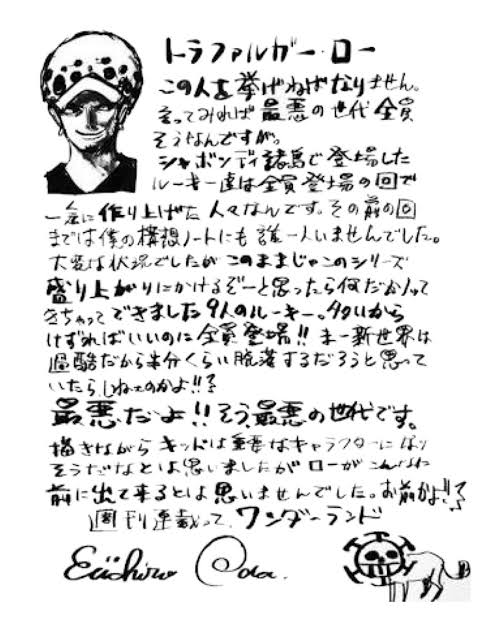 トラファルガー・ロー
この人を挙げねばなりません。
言ってみれば最悪の世代全員
そうなんですが。
シャボンディ諸島で登場した
ルーキー達は全員登場の回で
一気に作り上げた人々なんです。その前の回
までは僕の構想ノートにも誰一人いませんでした。
大変な状況でしたがこのままじゃこのシリーズ
盛り上がりにかけるぞーと思ったら何だか入って
きちゃってできました9人のルーキー。多いから
けずればいいのに全員登場!! まー新世界は
過酷だから半分くらい脱落するだろうと思って
いたらしねェのかよ!!?
最悪だよ!! そう、最悪の世代です。
描きながらキッドは重要なキャラクターになり
そうだなとは思いましたがローがこんなに
前に出て来るとは思いませんでした。お前かよ!!?
週刊連載って、ワンダーランド
Eiichiro Oda.